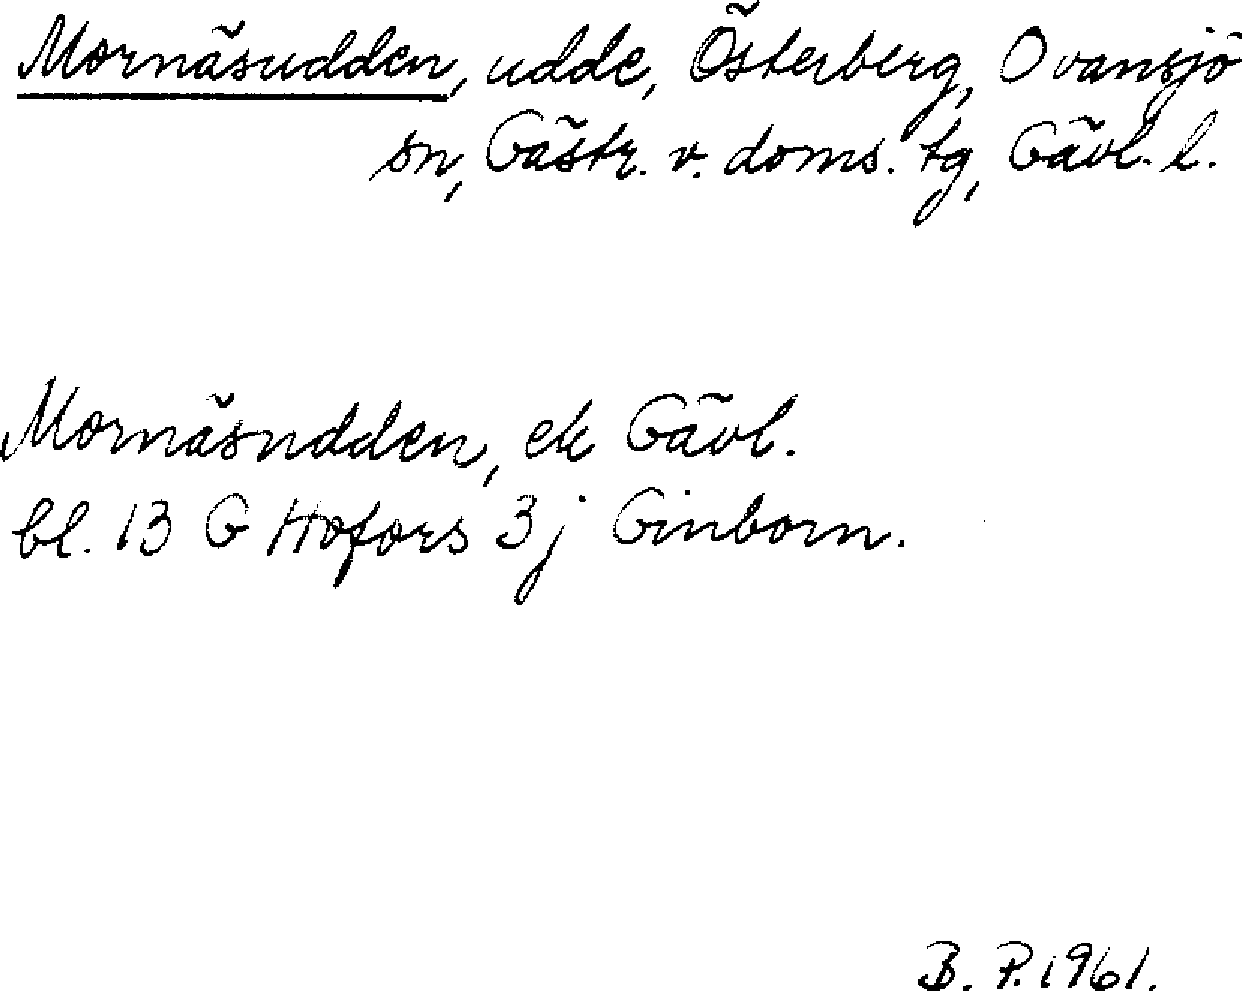 Mornäsudden, udde, Österberg, Ovansjö
sn, Gästr. v. doms. tg, Gävl. l.
Mornäsudden, ek Gävl.
bl. 13 G Hofors 3j Ginborn.
B. P. 1961.